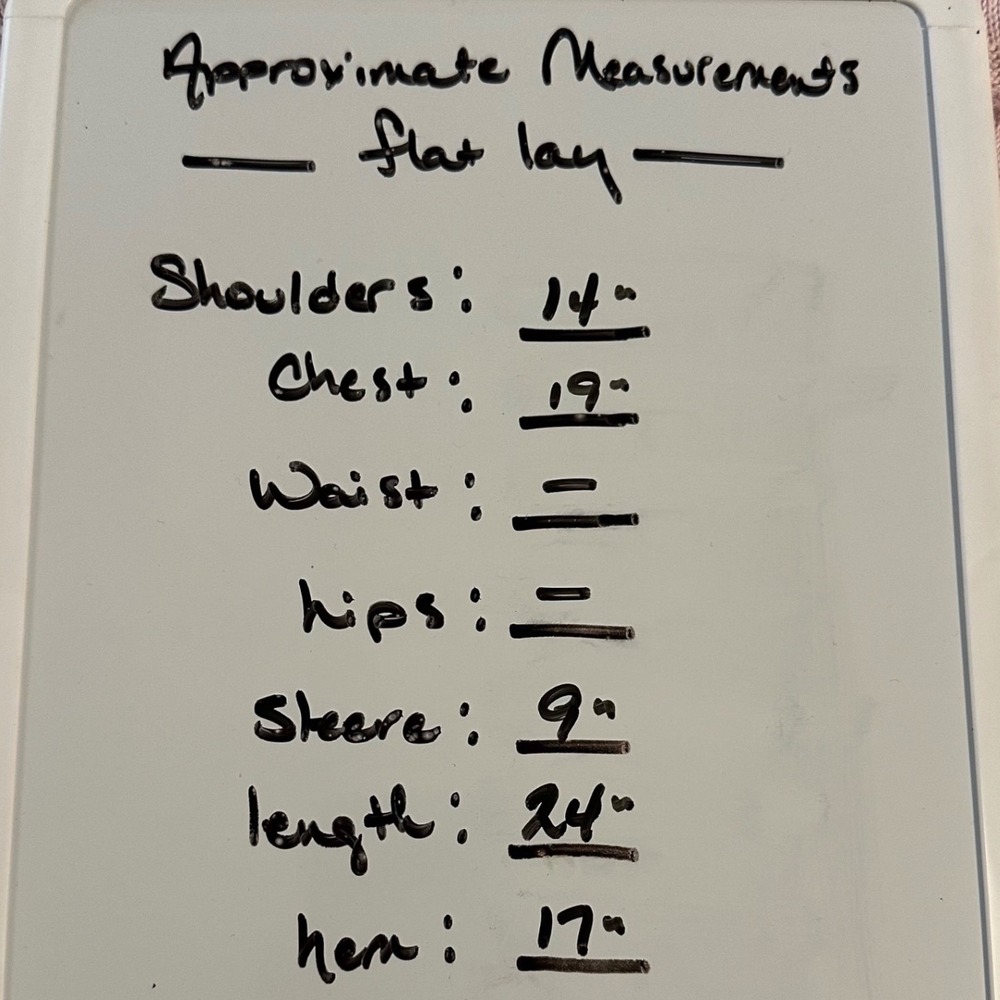 Approximate Measurements
— flat lay —
Shoulders: 14"
Chest: 19"
Waist: –
hips: –
Sleeve: 9"
length: 24"
hem: 17"